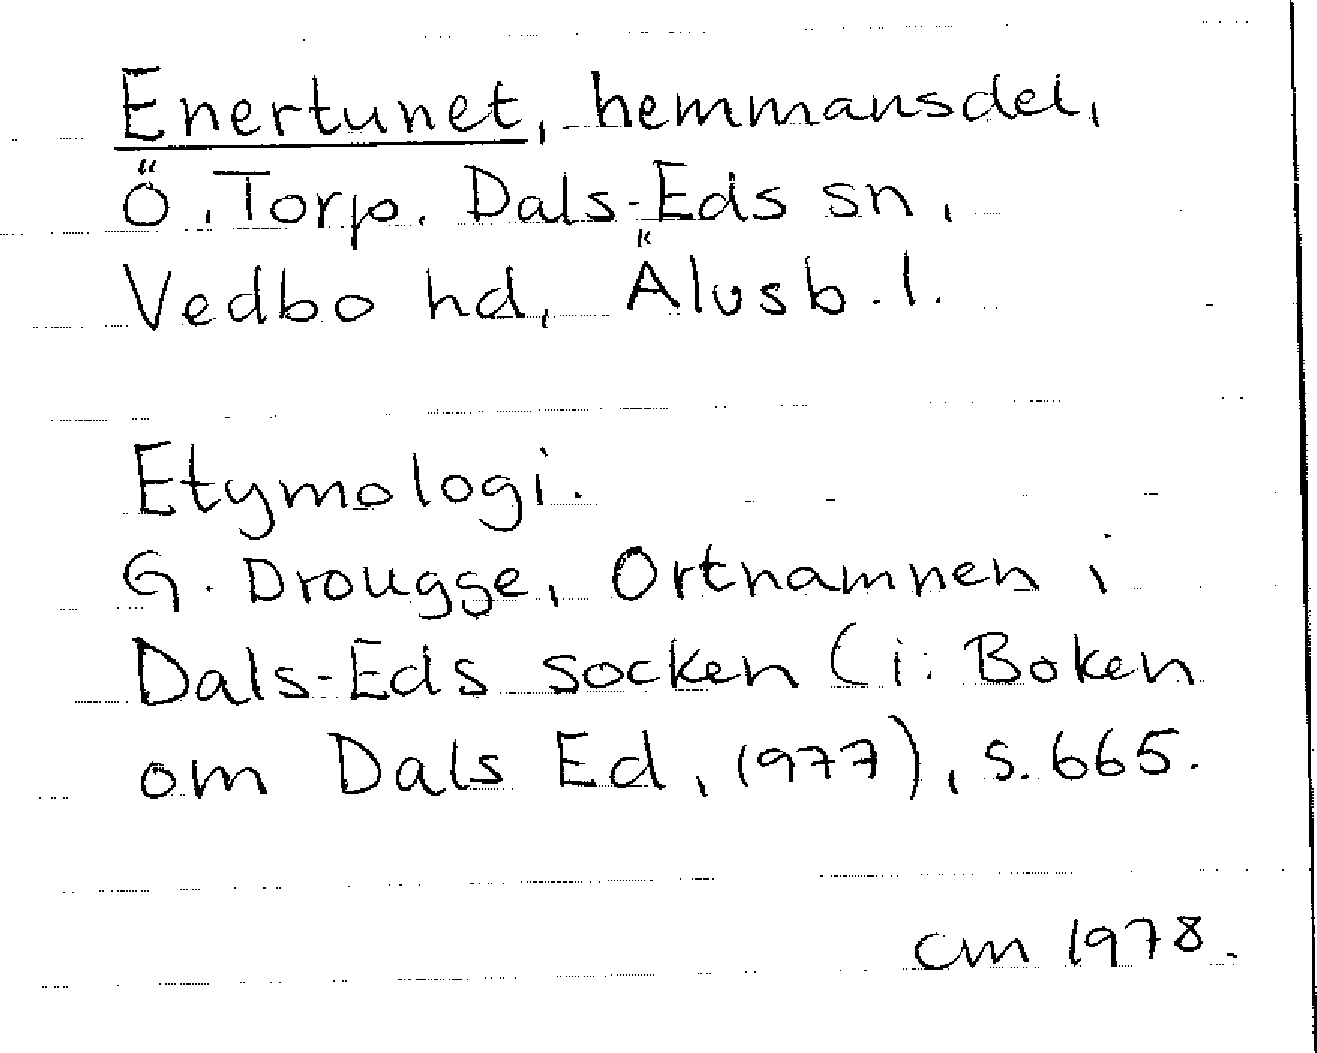 Enertunet, hemmansdel,
Ö. Torp. Dals-Eds sn,
Vedbo hd, Älvsb. l.
Etymologi.
G. Drougge, Ortnamnen i
Dals-Eds socken (i: Boken
om Dals Ed, 1977), s. 665.
cm 1978.